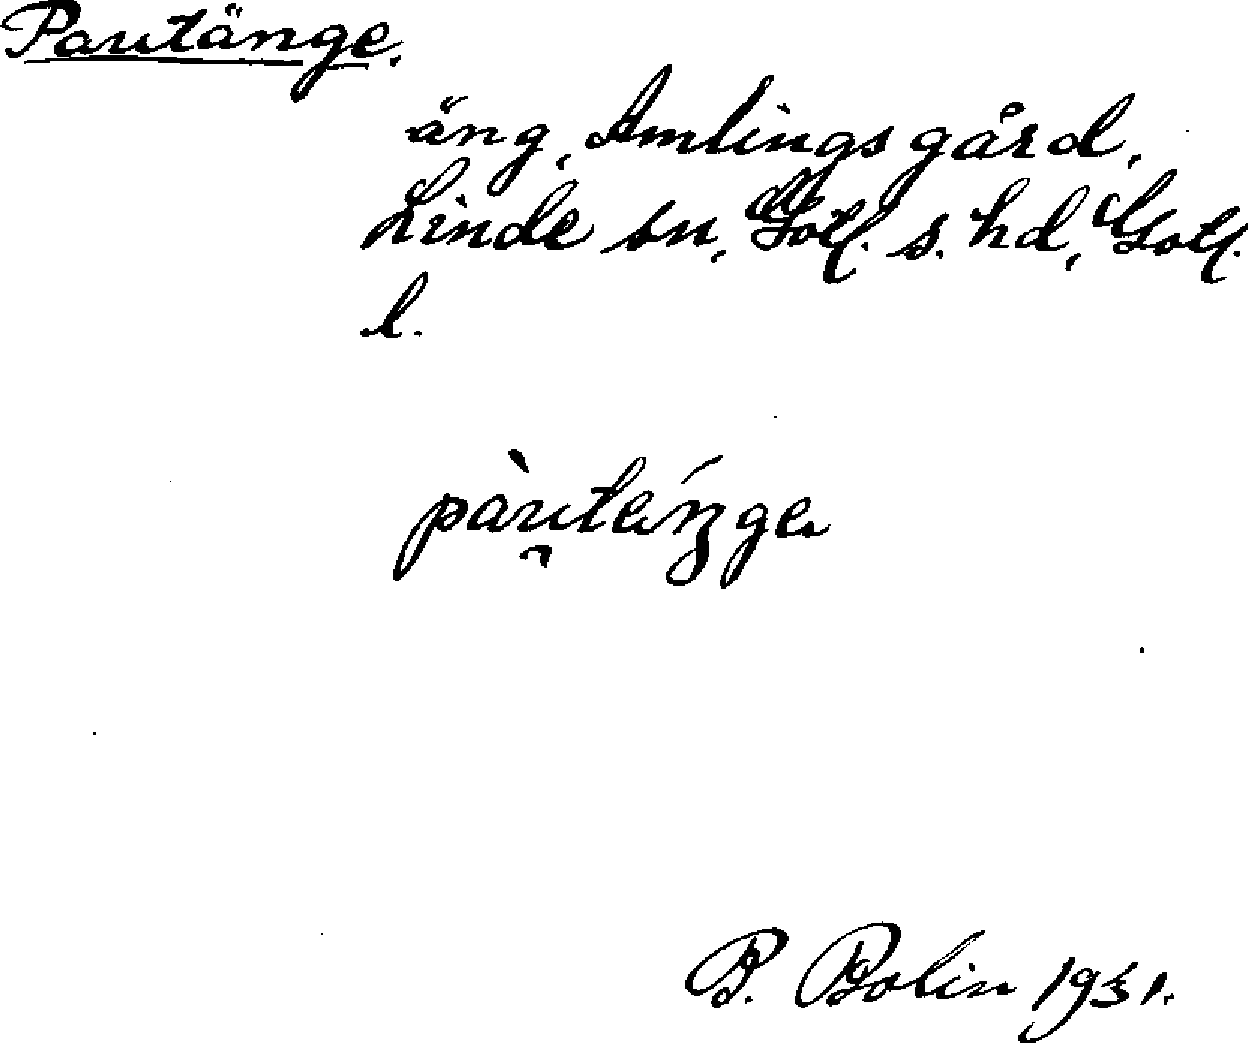 Pautänge.
äng, Amlings gård,
Linde sn, Gotl. s. hd, Gotl.
l.
pàu̯teŋ́ge
B. Bolin 1931.